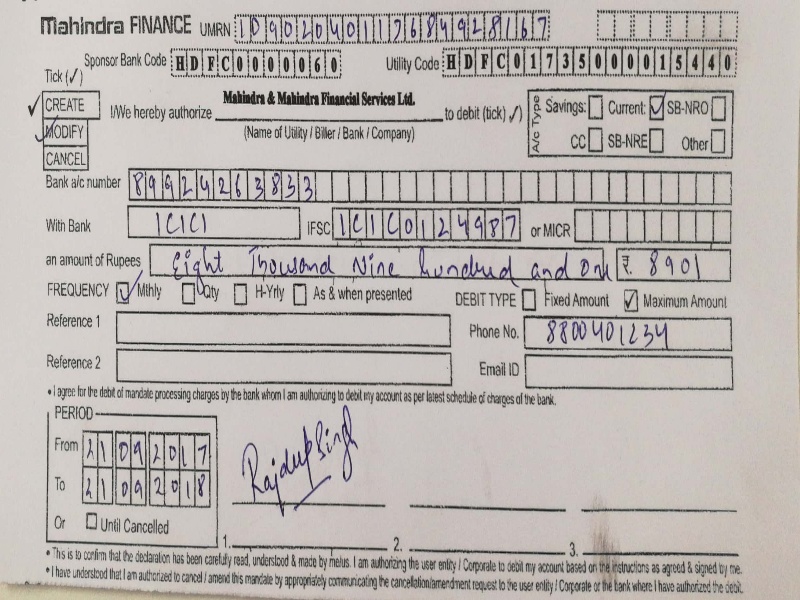 Mahindra FINANCE UMRN 10902040117684928167
Sponsor Bank Code HDFC0000060 Utility Code HDFC01735000015440
Tick (✓)
CREATE I/We hereby authorize Mahindra & Mahindra Financial Services Ltd. to debit (tick) ✓) A/c Type Savings: Current: SB-NRO
MODIFY (Name of Utility / Biller / Bank / Company) CC SB-NRE Other
CANCEL
Bank a/c number 89924263833
With Bank ICICI IFSC ICIC0124987 or MICR
an amount of Rupees Eight Thousand Nine hundred and one ₹. 8901
FREQUENCY Mthly Qty H-Yrly As & when presented DEBIT TYPE Fixed Amount Maximum Amount
Reference 1 Phone No. 8800401234
Reference 2 Email ID
• I agree for the debit of mandate processing charges by the bank whom I am authorizing to debit my account as per latest schedule of charges of the bank.
PERIOD
From 21092017
To 21092018
Rajdup Singh
Or Until Cancelled
1. 2. 3.
• This is to confirm that the declaration has been carefully read, understood & made by me/us. I am authorizing the user entity / Corporate to debit my account based on the instructions as agreed & signed by me.
• I have understood that I am authorized to cancel / amend this mandate by appropriately communicating the cancellation/amendment request to the user entity / Corporate or the bank where I have authorized the debit.